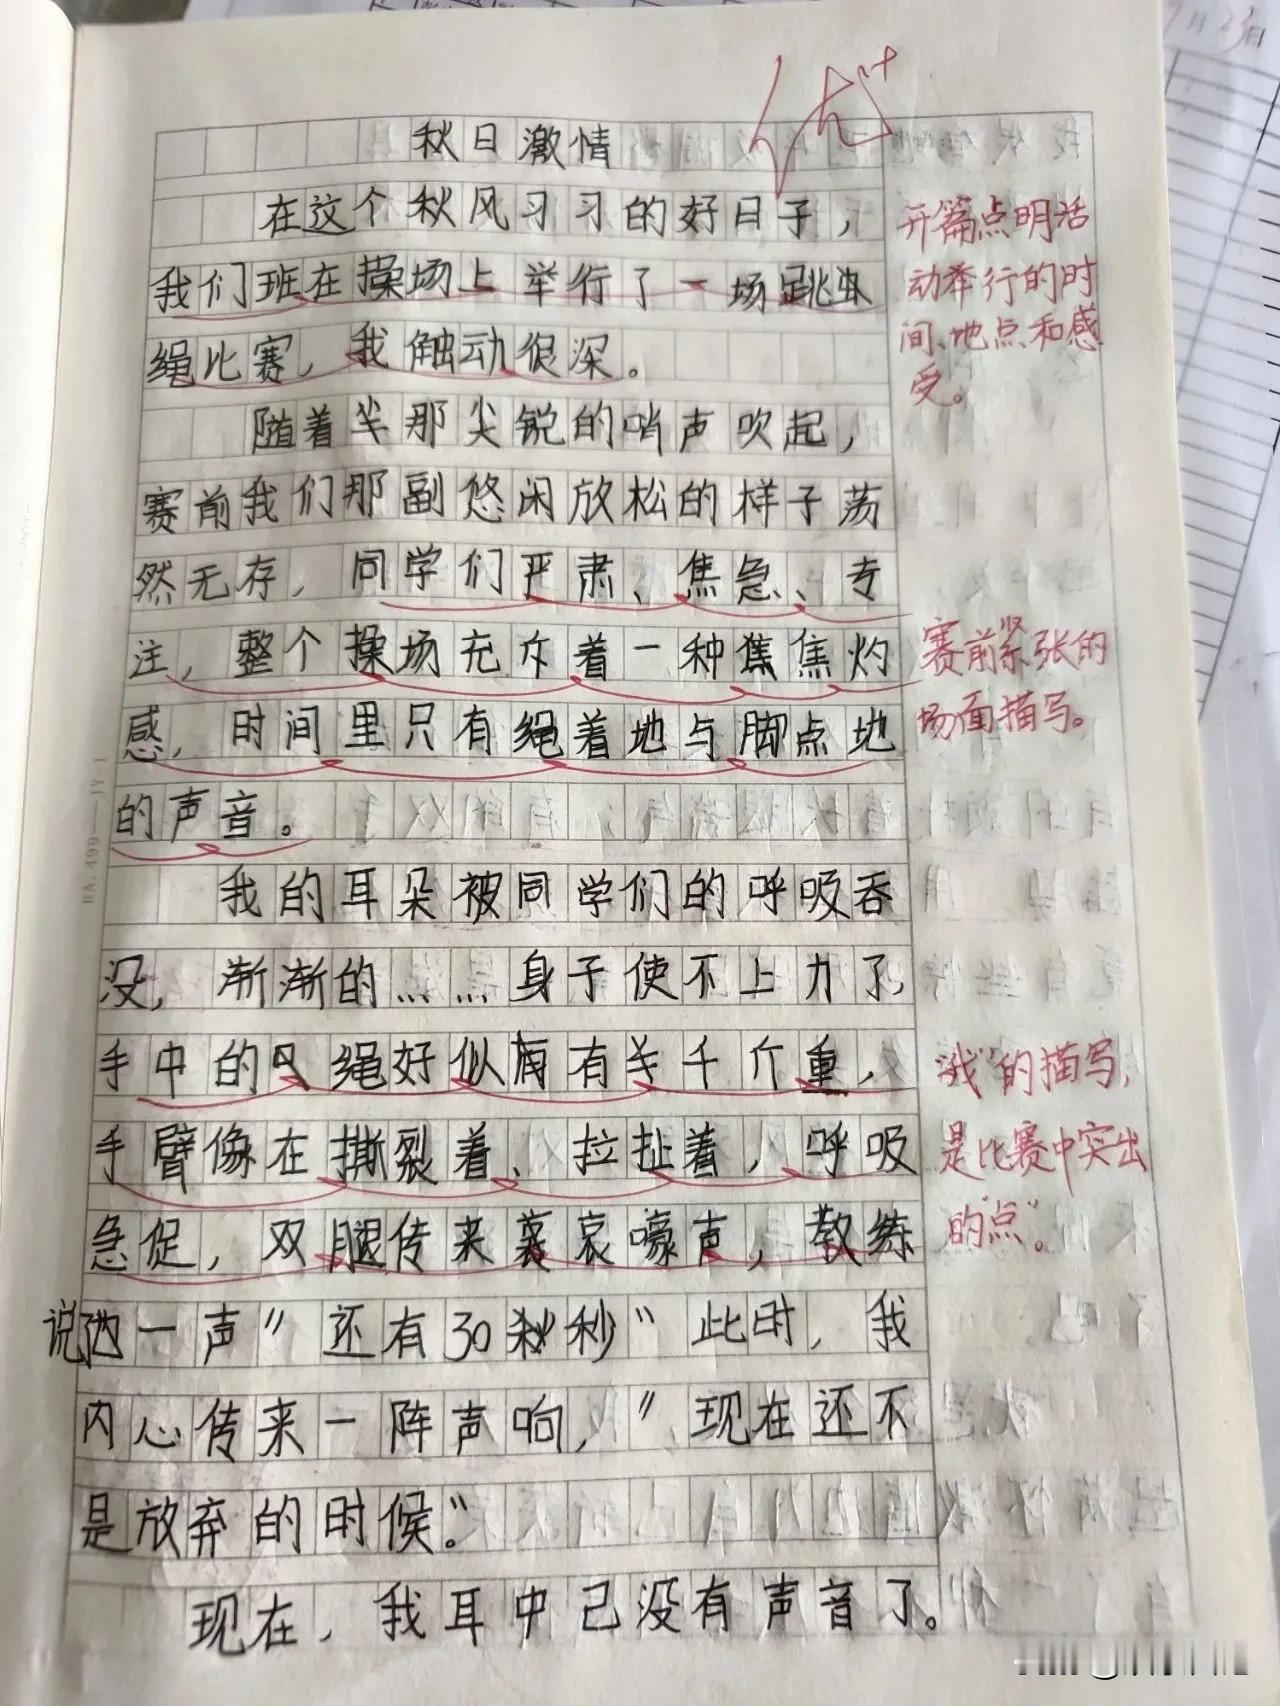 7月23日
优+
秋日激情
在这个秋风习习的好日子，
我们班在操场上举行了一场跳
绳比赛，我触动很深。
随着那尖锐的哨声吹起，
赛前我们那副悠闲放松的样子荡
然无存，同学们严肃、焦急、专
注，整个操场充斥着一种焦灼
感，时间里只有绳着地与脚点地
的声音。
我的耳朵被同学们的呼吸吞
没，渐渐的……身子使不上力了，
手中的绳好似有千斤重，
手臂像在撕裂着、拉扯着，呼吸
急促，双腿传来哀嚎声，教练
说一声"还有30秒"此时，我
内心传来一阵声响，"现在还不
是放弃的时候。"
现在，我耳中已没有声音了。
开篇点明活
动举行的时
间、地点和感
受。
赛前紧张的
场面描写。
"我"的描写，
是比赛中突出
的"点"。
RA.499—JY 1